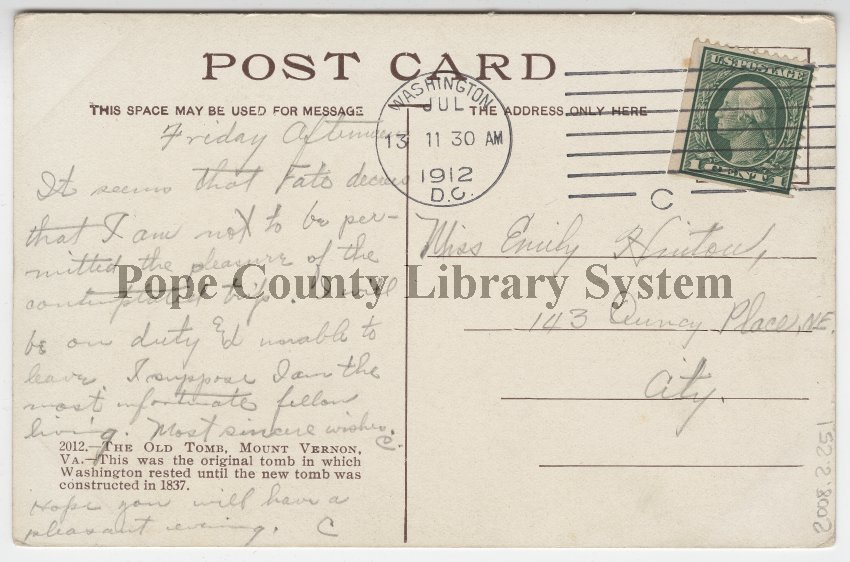 POST CARD
THIS SPACE MAY BE USED FOR MESSAGE
THE ADDRESS ONLY HERE
WASHINGTON
JUL
13 11 30 AM
1912
D.C.
C
U.S. POSTAGE
1 CENT 1
Friday Afternoon
It seems that Fate decrees
that I am not to be per-
mitted the pleasure of the
contemplated trip. I will
be on duty &'d unable to
leave. I suppose I am the
most unfortunate fellow
living. Most sincere wishes. C
2012.—THE OLD TOMB, MOUNT VERNON,
VA.—This was the original tomb in which
Washington rested until the new tomb was
constructed in 1837.
Hope you will have a
pleasant evening. C
Miss Emily Hinton,
143 Quincy Place, N.E.
City.
Pope County Library System